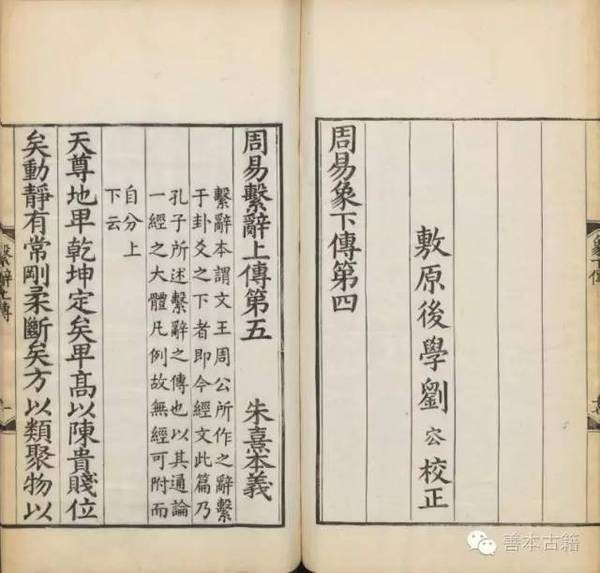 周易象下傳第四
敷原後學劉㝐校正
象下傳
周易繫辭上傳第五 朱熹本義
繫辭本謂文王周公所作之辭繫
于卦爻之下者即今經文此篇乃
孔子所述繫辭之傳也以其通論
一經之大體凡例故無經可附而
自分上
下云
天尊地卑乾坤定矣卑高以陳貴賤位
矣動靜有常剛柔斷矣方以類聚物以
繫辭上傳
一
善本古籍